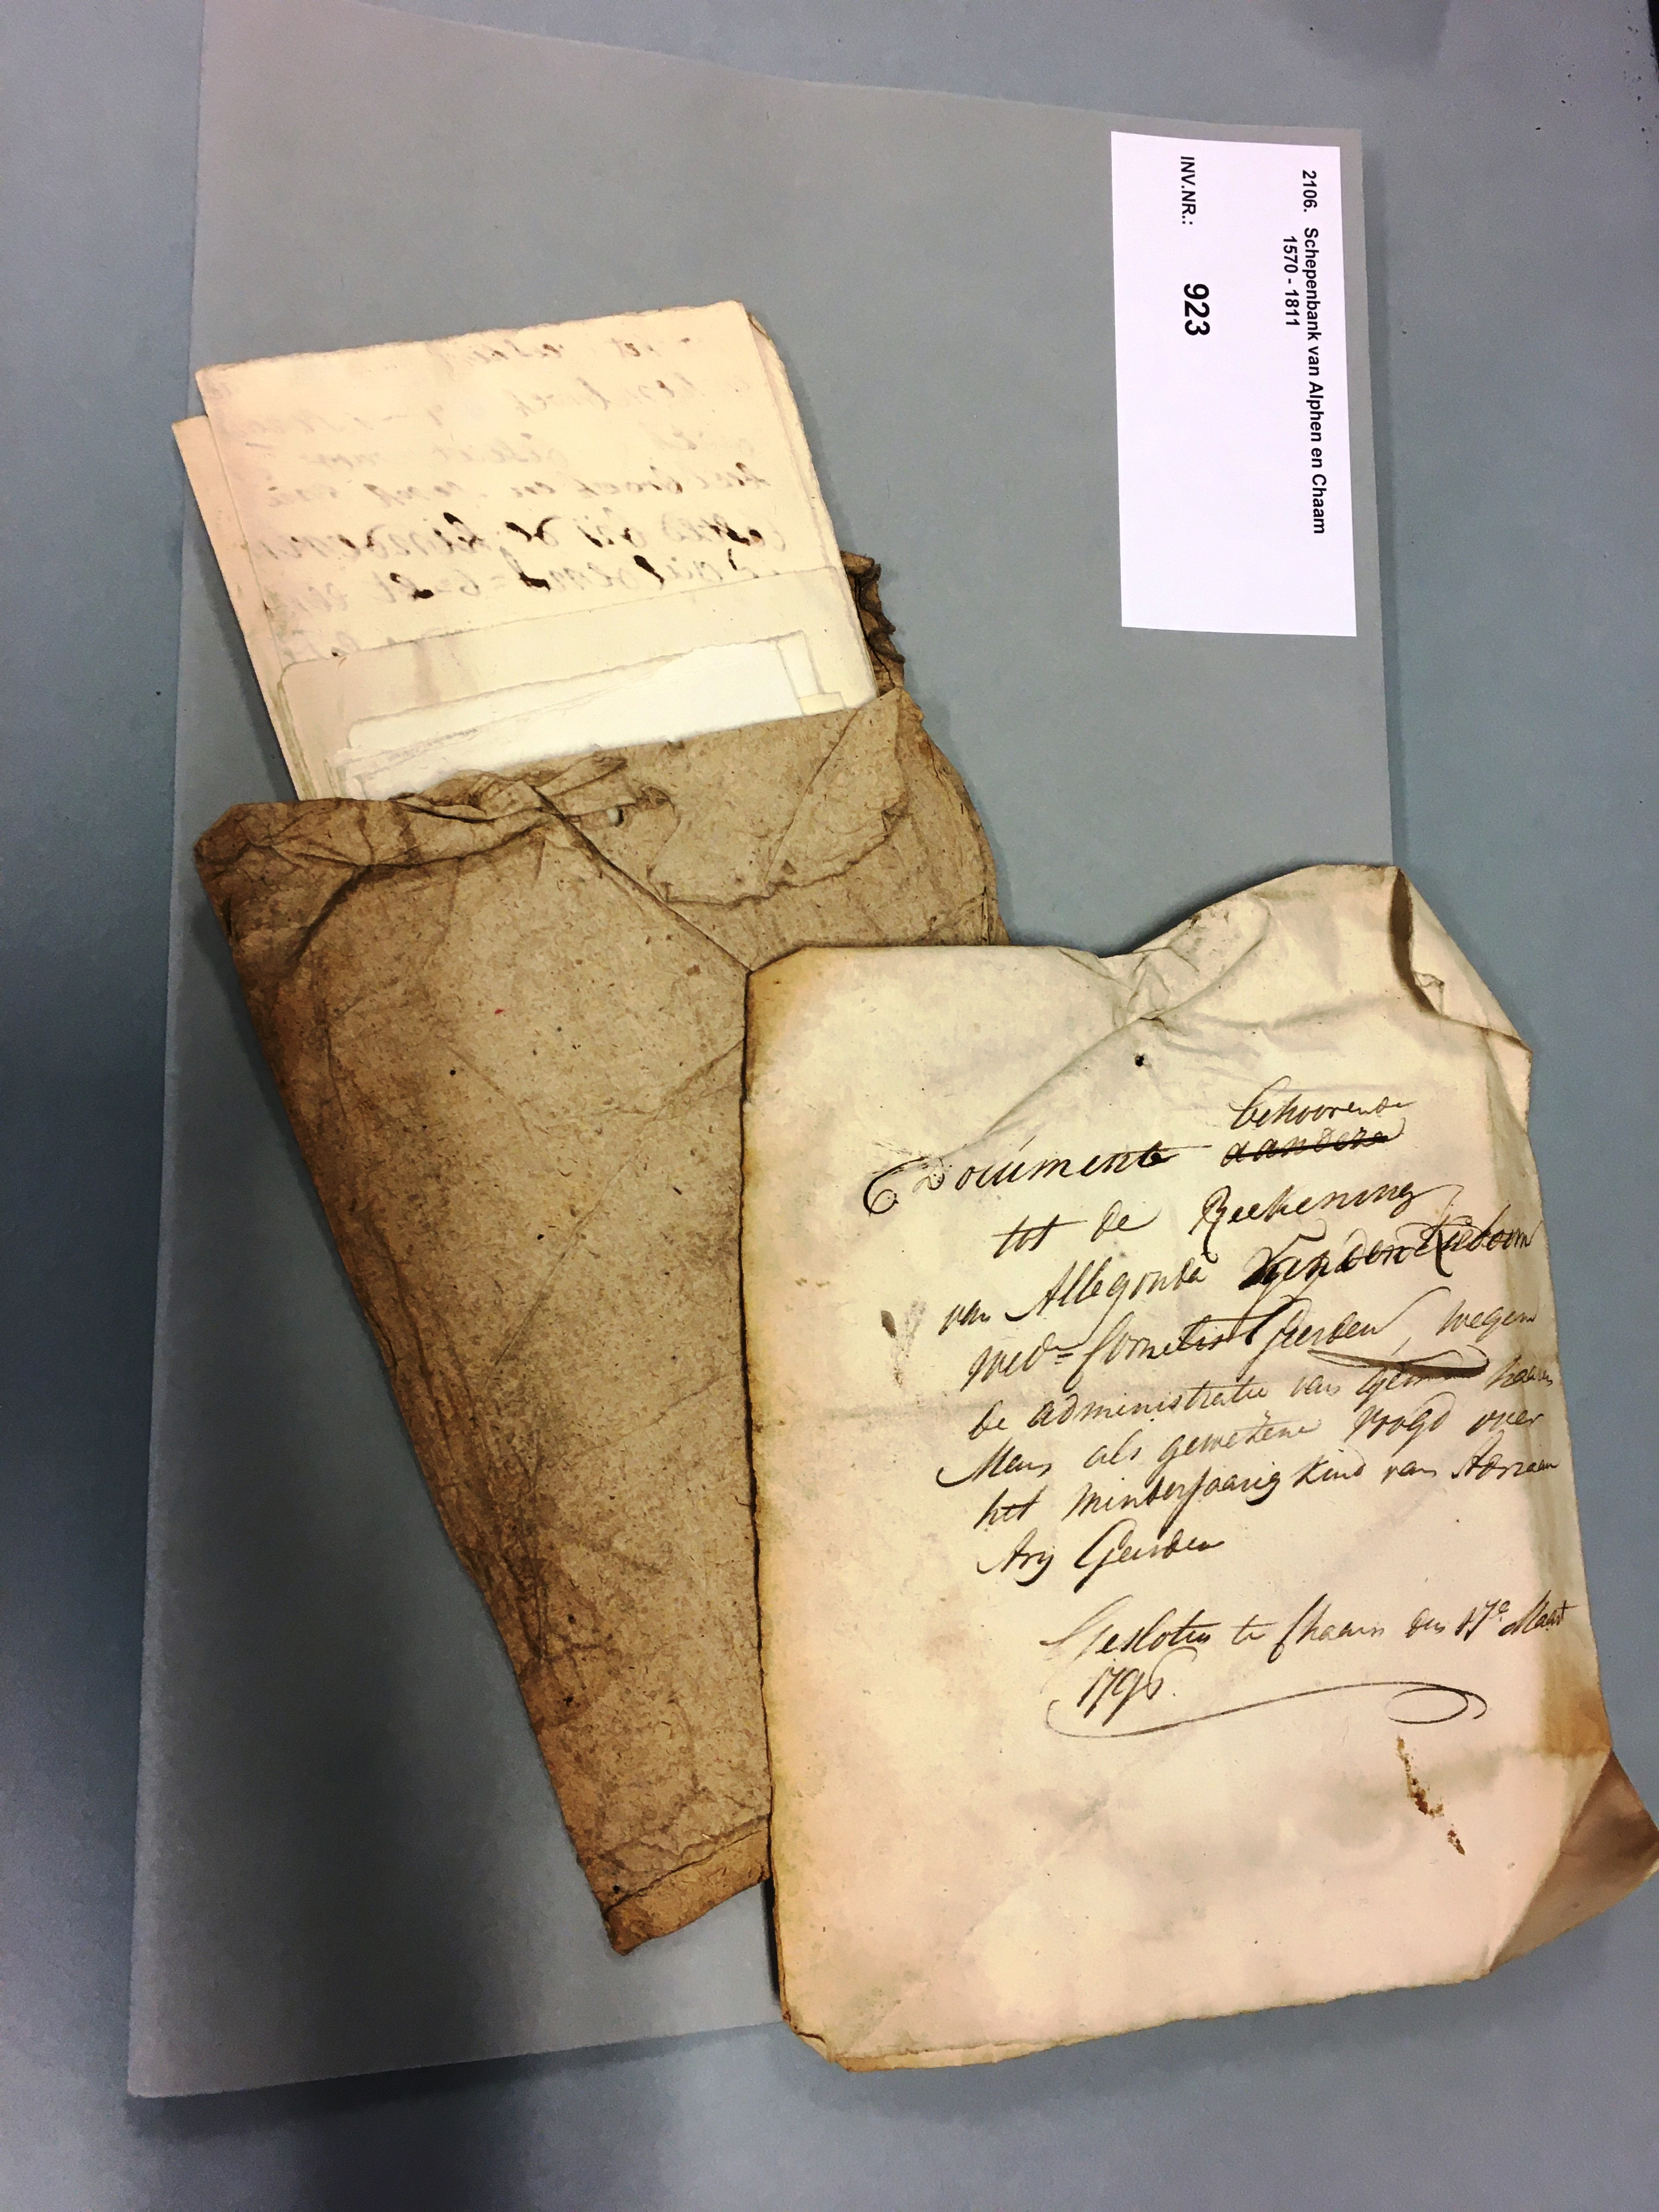 2106. Schepenbank van Alphen en Chaam
1570 - 1811
INV.NR.: 923
behoorende
Documente aandeze
tot de Reekening
van Allegonda van den Kieboom
wedᵉ= Cornelis Geerden, wegens
de administratie van haaren
Man als gewezene voogd over
het minderjaarig kind van Adriaan
Arij Geerden
Gesloten te Chaam den 17ᵉ Maart
1796.